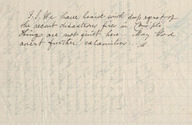 P.S. We have heard with deep regret of
the recent disastrous fires in
things are not quiet here. May God
avert further calamities.